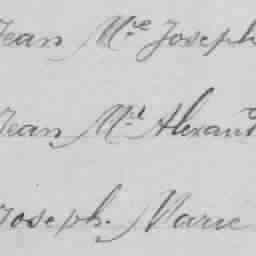 Jean Mie Joseph
Jean Md Alexand
Joseph. Marie